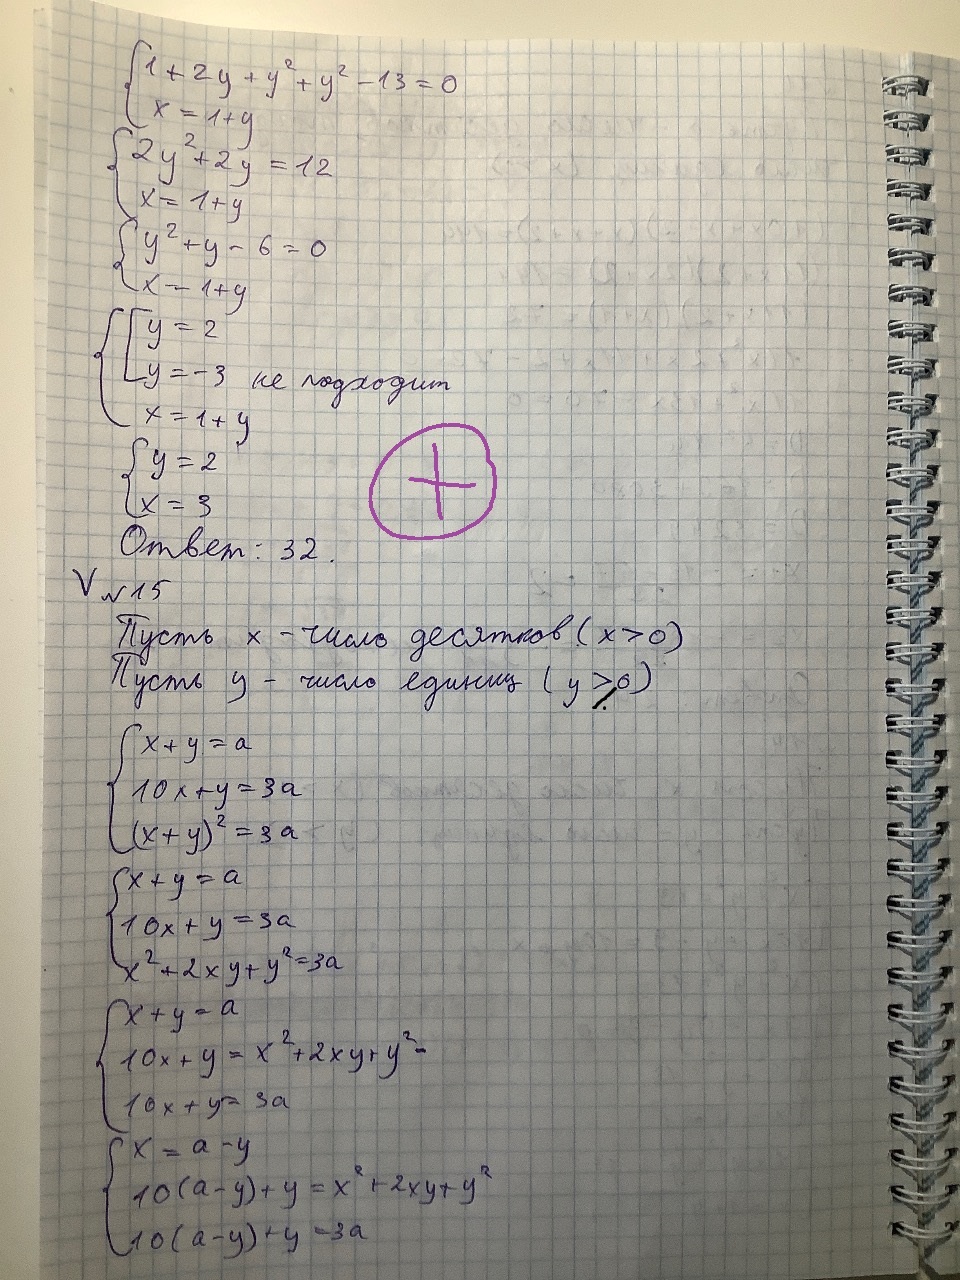 1+2y+y²+y²-13=0
x=1+y
2y²+2y=12
x=1+y
y²+y-6=0
x=1+y
y=2
y=-3 не подходит
x=1+y
y=2
x=3
Ответ: 32.
V №15
Пусть x - число десятков (x>0)
Пусть y - число единиц (y⩾0)
x+y=a
10x+y=3a
(x+y)²=3a
x+y=a
10x+y=3a
x²+2xy+y²=3a
x+y=a
10x+y=x²+2xy+y²-
10x+y=3a
x=a-y
10(a-y)+y=x²+2xy+y²
10(a-y)+y=3a